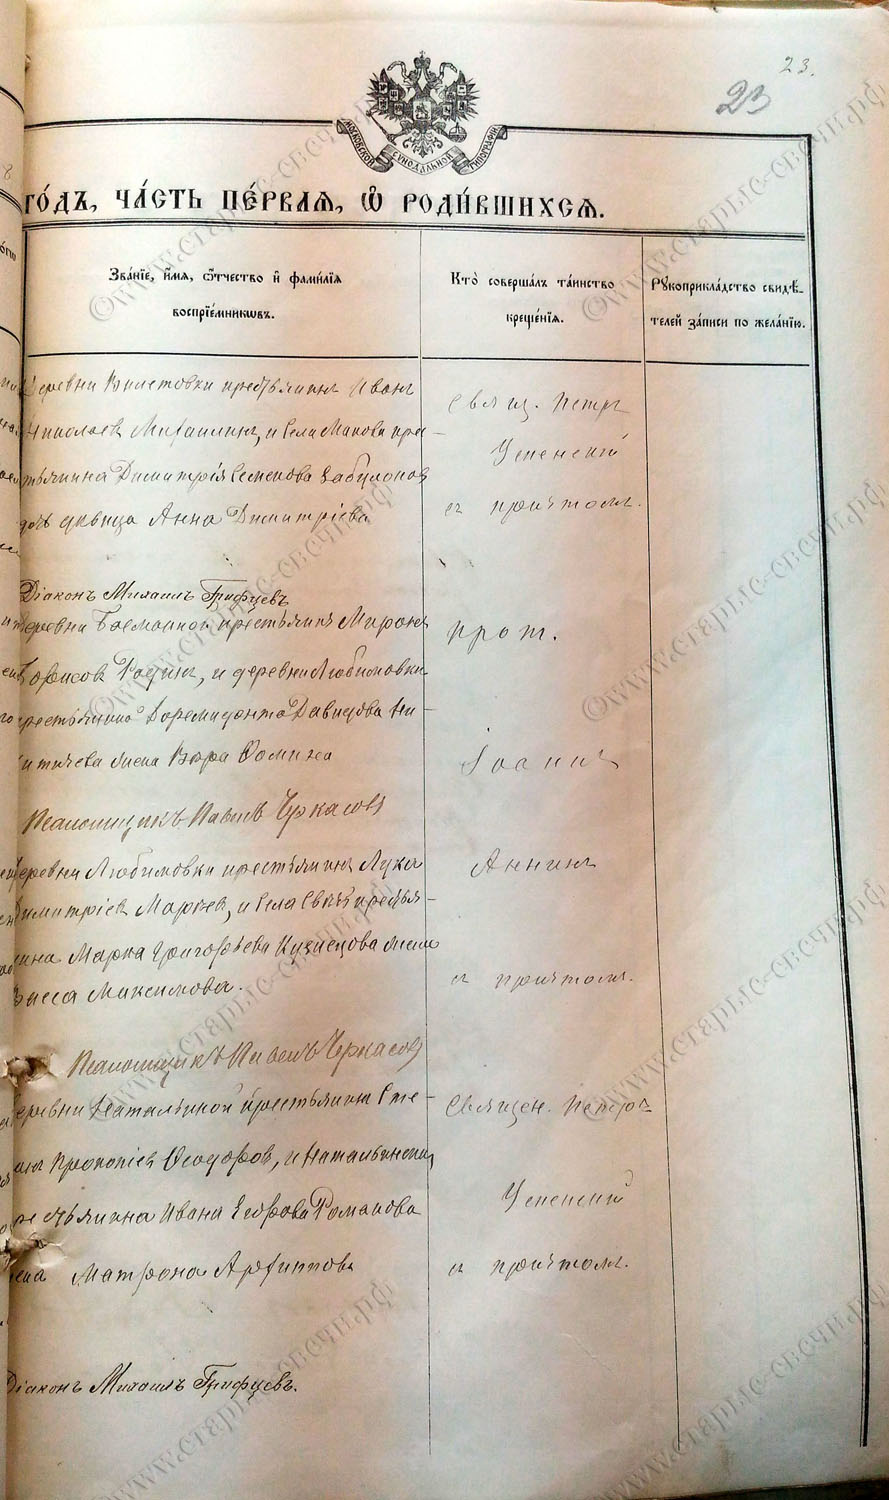 23.
23
МОСКОВСКОЙ СУНОДАЛЬНОЙ ТИПОГРАФІИ
ГО́ДЪ, ЧА́СТЬ ПЕ́РВАЯ, Ѿ РОДИ́ВШИХСЯ.
Зва́нїе, и҆́мѧ, ѻ҆́тчество и҆ фами́лїѧ
воспрїе́мникѡвъ.
Кто̀ соверша́лъ та́инство
креще́нїѧ.
Рꙋкоприкла́дство свидѣ́-
телей за́писи по жела́нїю.
крестьянинъ Иванъ
Николаевъ Михалинъ, и села Макова крес-
тьянина Димитрія Семенова
дочь дѣвица Анна Димитріева
Свящ. Петръ
Успенскій
съ причтомъ.
Діаконъ Михаилъ Грифцевъ
деревни крестьянинъ Миронъ
Борисовъ Родинъ, и деревни Любимовки
крестьянина Доримидонта Давидова Ни-
китичева жена Вѣра Фомина
прот.
Іоаннъ
Псаломщикъ Павелъ Черкасовъ
деревни Любимовки крестьянинъ Лука
Димитріевъ Маркевъ, и села крестья-
нина Марка Григорьева Кузнецова жена
Васса Максимова.
Аннинъ
съ причтомъ.
Псаломщикъ Павелъ Черкасовъ
деревни Натальиной крестьянинъ Сте-
анъ Прокопіевъ Ѳеодоровъ, и Натальинской
крестьянина Ивана Егорова Романова
жена Матрона Архиппова
Священ. Петръ
Успенскій
съ причтомъ.
Діаконъ Михаилъ Грифцевъ.
©www.старые-свечи.рф